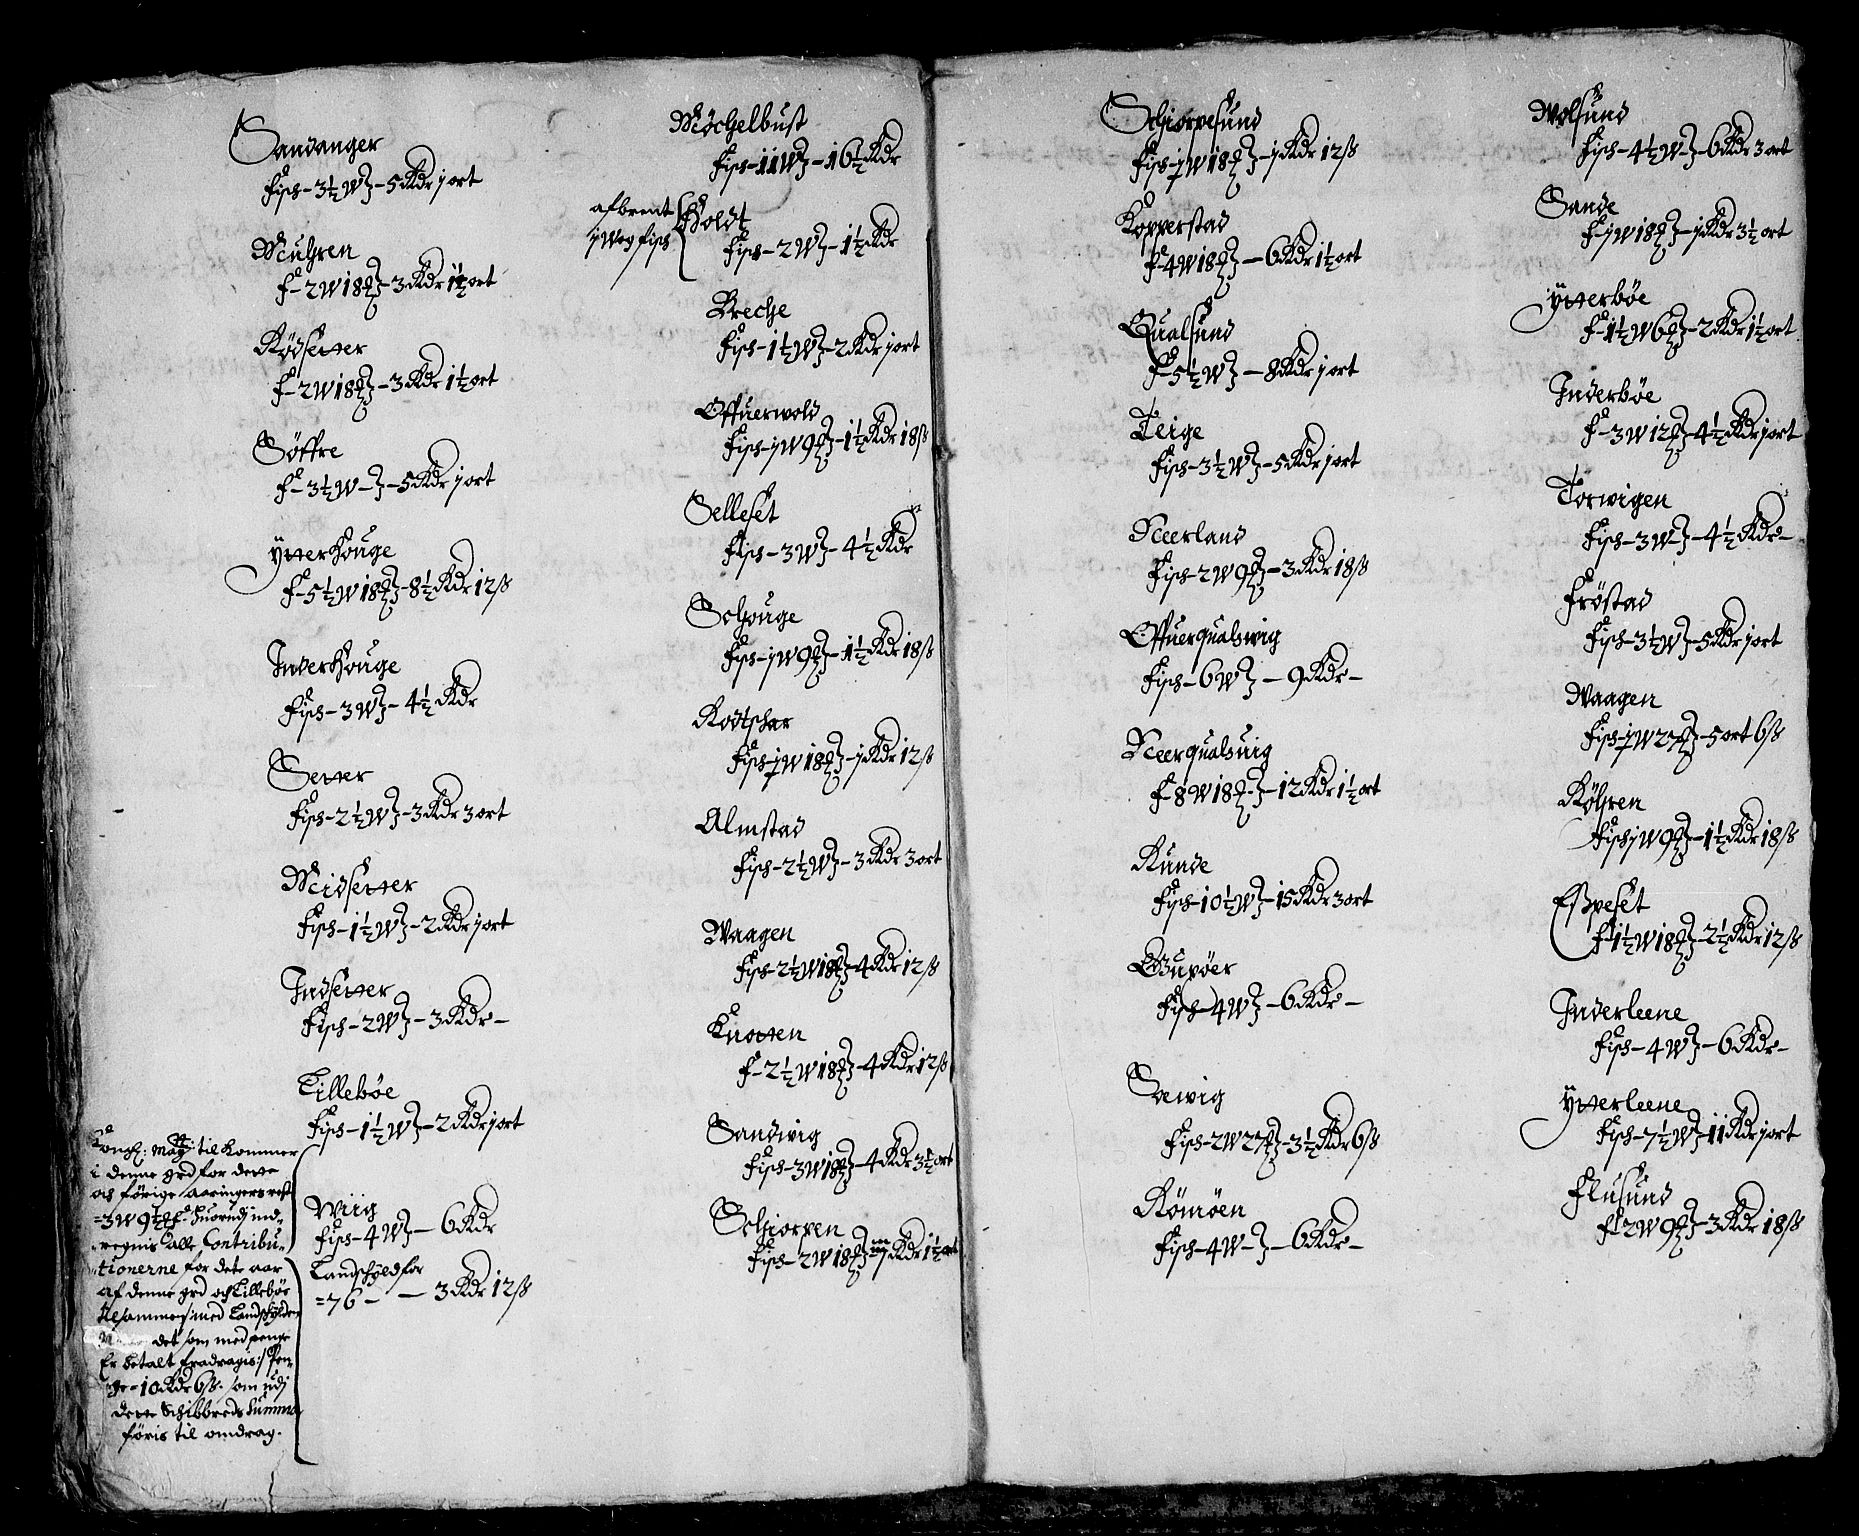 Sandanger
Fisch - 3½ W - 5 Rdr j ort
Mulhren
F - 2 W 18 - 3 Rdr 1½ ort
Rødsetter
F - 2 W 18 - 3 Rdr 1½ ort
Søffre
F - 3½ W - 5 Rdr j ort
Ytterhouge
F - 5½ W 18 - 8½ Rdr 12 ß
Inderhouge
Fisch - 3 W - 4½ Rdr
Setter
Fisch - 2½ W - 3 Rdr 3 ort
Midsetter
Fisch - 1½ W - 2 Rdr j ort
Indsetter
Fisch - 2 W - 3 Rdr -
Lillebøe
Fisch - 1½ W - 2 Rdr j ort
Kongl: May: til kommer
i denne grd for dette
och førige aaringers rest
= 3 W 9½ huorudj ind-
regnis alle Contribu-
tionerne for dete aar
af denne grd och Lillebøe
tilsammen med Landschylden
det som med penge
Er betalt fradragis:/ Pen-
ge = 10 Rdr 6 ß. som udj
dette Schibbreds Summa
føris til omdrag.
Wiig
Fisch - 4 W - 6 Rdr
Landschyld for
= 76 - - 3 Rdr 12 ß
Møchelbust
Fisch - 11 W - 16½ Rdr
afbrent
j Wog fisch
Holdt
Fisch - 2 W - 1½ Rdr
Breche
Fisch - 1½ W - 2 Rdr j ort
Offuerwold
Fisch - j W 9 - 1½ Rdr 18 ß
Selleset
Fisch - 3 W - 4½ Rdr
Schouge
Fisch - j W 9 - 1½ Rdr 18 ß
Rodtschar
Fisch - j W 18 - j Rdr 12 ß
Almstad
Fisch - 2½ W - 3 Rdr 3 ort
Waagen
Fisch - 2½ W 18 - 4 Rdr 12 ß
Knotten
F - 2½ W 18 - 4 Rdr 12 ß
Sandwig
Fisch - 3 W 18 - 4 Rdr 3½ ort
Schiorpen
Fisch - 2 W 18 - Rdr 1½ ort
Schiorpesund
Fisch - j W 18 - j Rdr 12 ß
Kopperstad
F - 4 W 18 - 6 Rdr 1½ ort
Qualsund
F - 5½ W - 8 Rdr j ort
Teige
Fisch - 3½ W - 5 Rdr j ort
Neerland
Fisch - 2 W 9 - 3 Rdr 18 ß
Offuerqualswig
Fisch - 6 W - 9 Rdr -
Neerqualsuig
F - 8 W 18 - 12 Rdr 1½ ort
Runde
Fisch - 10½ W - 15 Rdr 3 ort
Gurøer
Fisch - 4 W - 6 Rdr -
Sæwig
Fisch - 2 W 27 - 3½ Rdr 6 ß
Rømøen
Fisch - 4 W - 6 Rdr -
Wolsund
Fisch - 4½ W - 6 Rdr 3 ort
Sande
F - j W 18 - j Rdr 3½ ort
Ytterbøe
F - 1½ W 6 - 2 Rdr 1½ ort
Inderbøe
F - 3 W 12 - 4½ Rdr j ort
Torwigen
Fisch - 3 W - 4½ Rdr -
Frøstad
Fisch - 3½ W - 5 Rdr j ort
Waagen
Fisch - j W 27 - 5 ort 6 ß
Kølhren
Fisch j W 9 - 1½ Rdr 18 ß
Eßpeset
F 1½ W 18 - 2½ Rdr 12 ß
Inderleene
Fisch - 4 W - 6 Rdr -
Ytterleene
Fisch - 7½ W - 11 Rdr j ort
Flusund
F 2 W 9 - 3 Rdr 18 ß